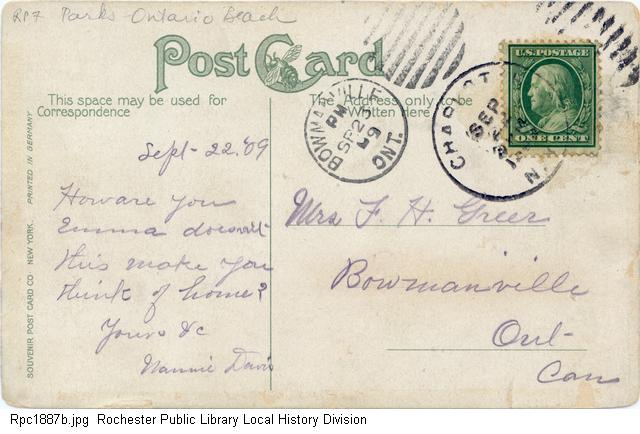 RP7 Parks - Ontario Beach
Post Card
This space may be used for
Correspondence
The Address only to be
Written here
BOWMANVILLE
PM
SP 23
09
ONT.
CHARLOT
SEP
N
U.S. POSTAGE
ONE CENT
Sept- 22. '09
How are you
Emma doesn't
this make you
think of home?
Yours &c
Nannie Davis
Mrs F. H. Greer
Bowmanville
Ont-
Can
PRINTED IN GERMANY
SOUVENIR POST CARD CO NEW YORK.
Rpc1887b.jpg Rochester Public Library Local History Division